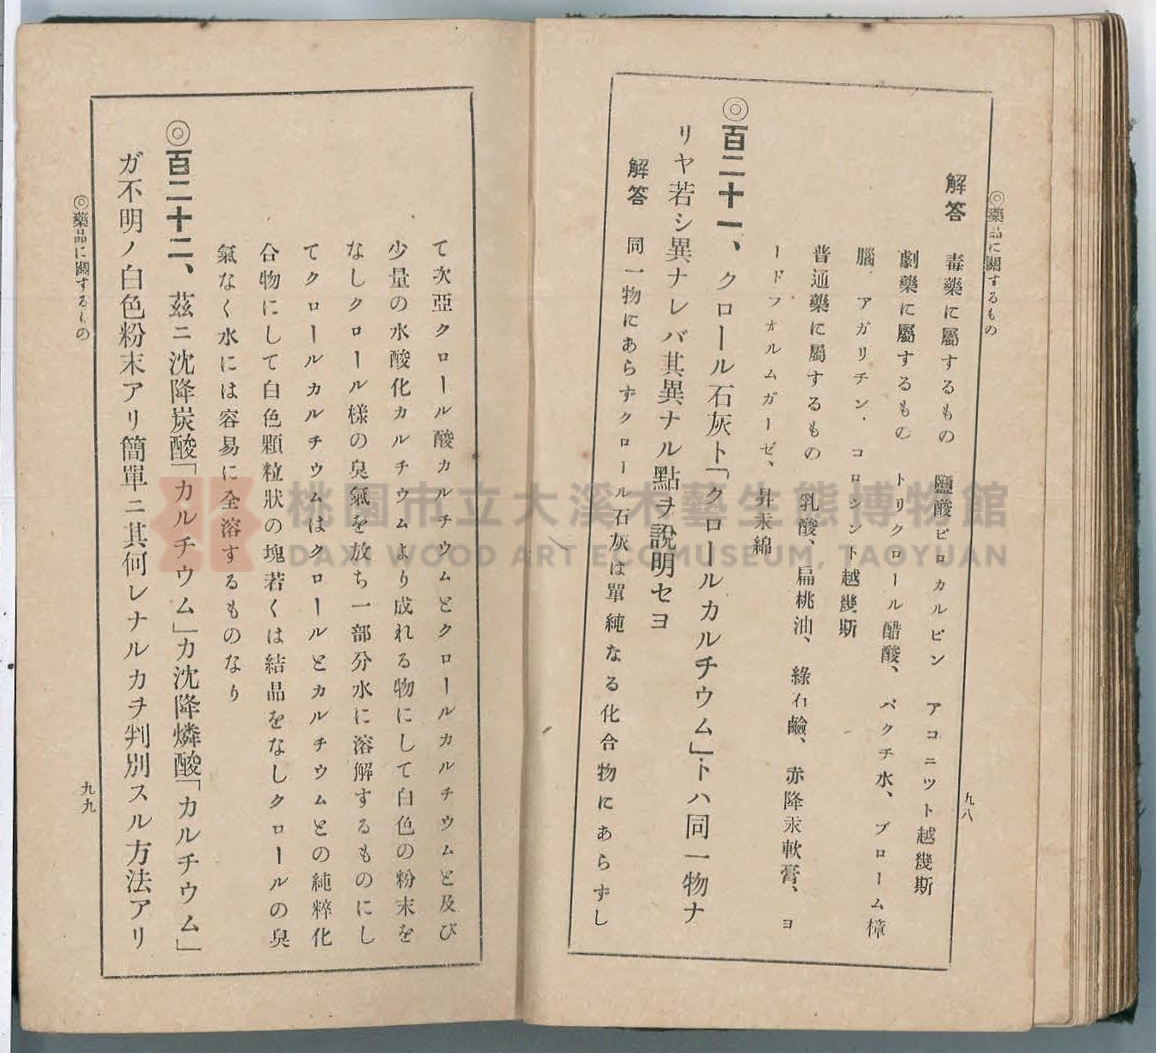 ◎藥品に關するもの
解答 毒藥に屬するもの 鹽酸ピロカルピン アコニツト越幾斯
劇藥に屬するもの トリクロール醋酸、バクチ水、ブローム樟
腦、アガリチン、コロシント越幾斯
普通藥に屬するもの 乳酸、扁桃油、綠石鹼、赤降汞軟膏、ヨ
ードフオルムガーゼ、昇汞綿
◎百二十一、クロール石灰ト「クロールカルチウム」トハ同一物ナ
リヤ若シ異ナレバ其異ナル點ヲ說明セヨ
解答 同一物にあらずクロール石灰は單純なる化合物にあらずし
九八
て次亞クロール酸カルチウムとクロールカルチウムと及び
少量の水酸化カルチウムより成れる物にして白色の粉末を
なしクロール樣の臭氣を放ち一部分水に溶解するものにし
てクロールカルチウムはクロールとカルチウムとの純粹化
合物にして白色顆粒狀の塊若くは結晶をなしクロールの臭
氣なく水には容易に全溶するものなり
◎百二十二、茲ニ沈降炭酸「カルチウム」カ沈降燐酸「カルチウム」
ガ不明ノ白色粉末アリ簡單ニ其何レナルカヲ判別スル方法アリ
◎藥品に關するもの
九九
桃園市立大溪木藝生態博物館
DAXI WOOD ART ECOMUSEUM, TAOYUAN